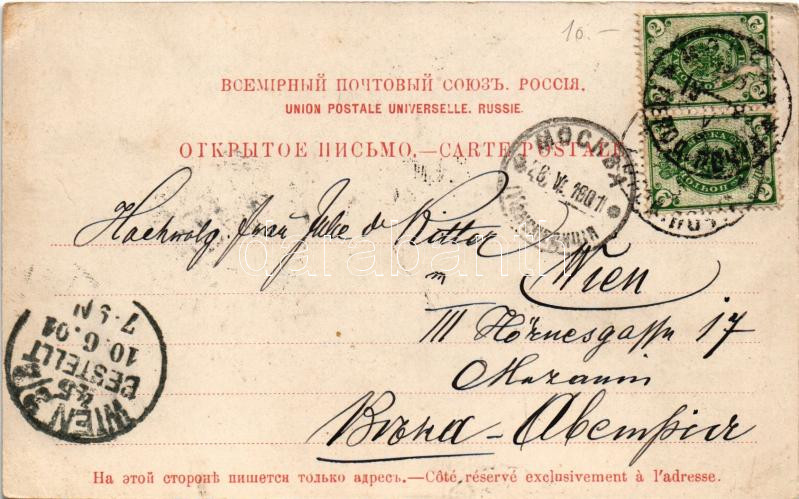 10.-
ВСЕМІРНЫЙ ПОЧТОВЫЙ СОЮЗЪ. РОССІЯ.
UNION POSTALE UNIVERSELLE. RUSSIE.
ОТКРЫТОЕ ПИСЬМО.—CARTE POSTALE
МОСКВА
1901
Hochwolg. Frau Julie de Ritter
in Wien
III Hörnesgasse 17
Mezanin
Вѣна - Австрія
WIEN 3/2
45
BESTELLT
10.6.01
7-9 N
На этой сторонѣ пишется только адресъ.—Côté réservé exclusivement à l'adresse.
darabanth